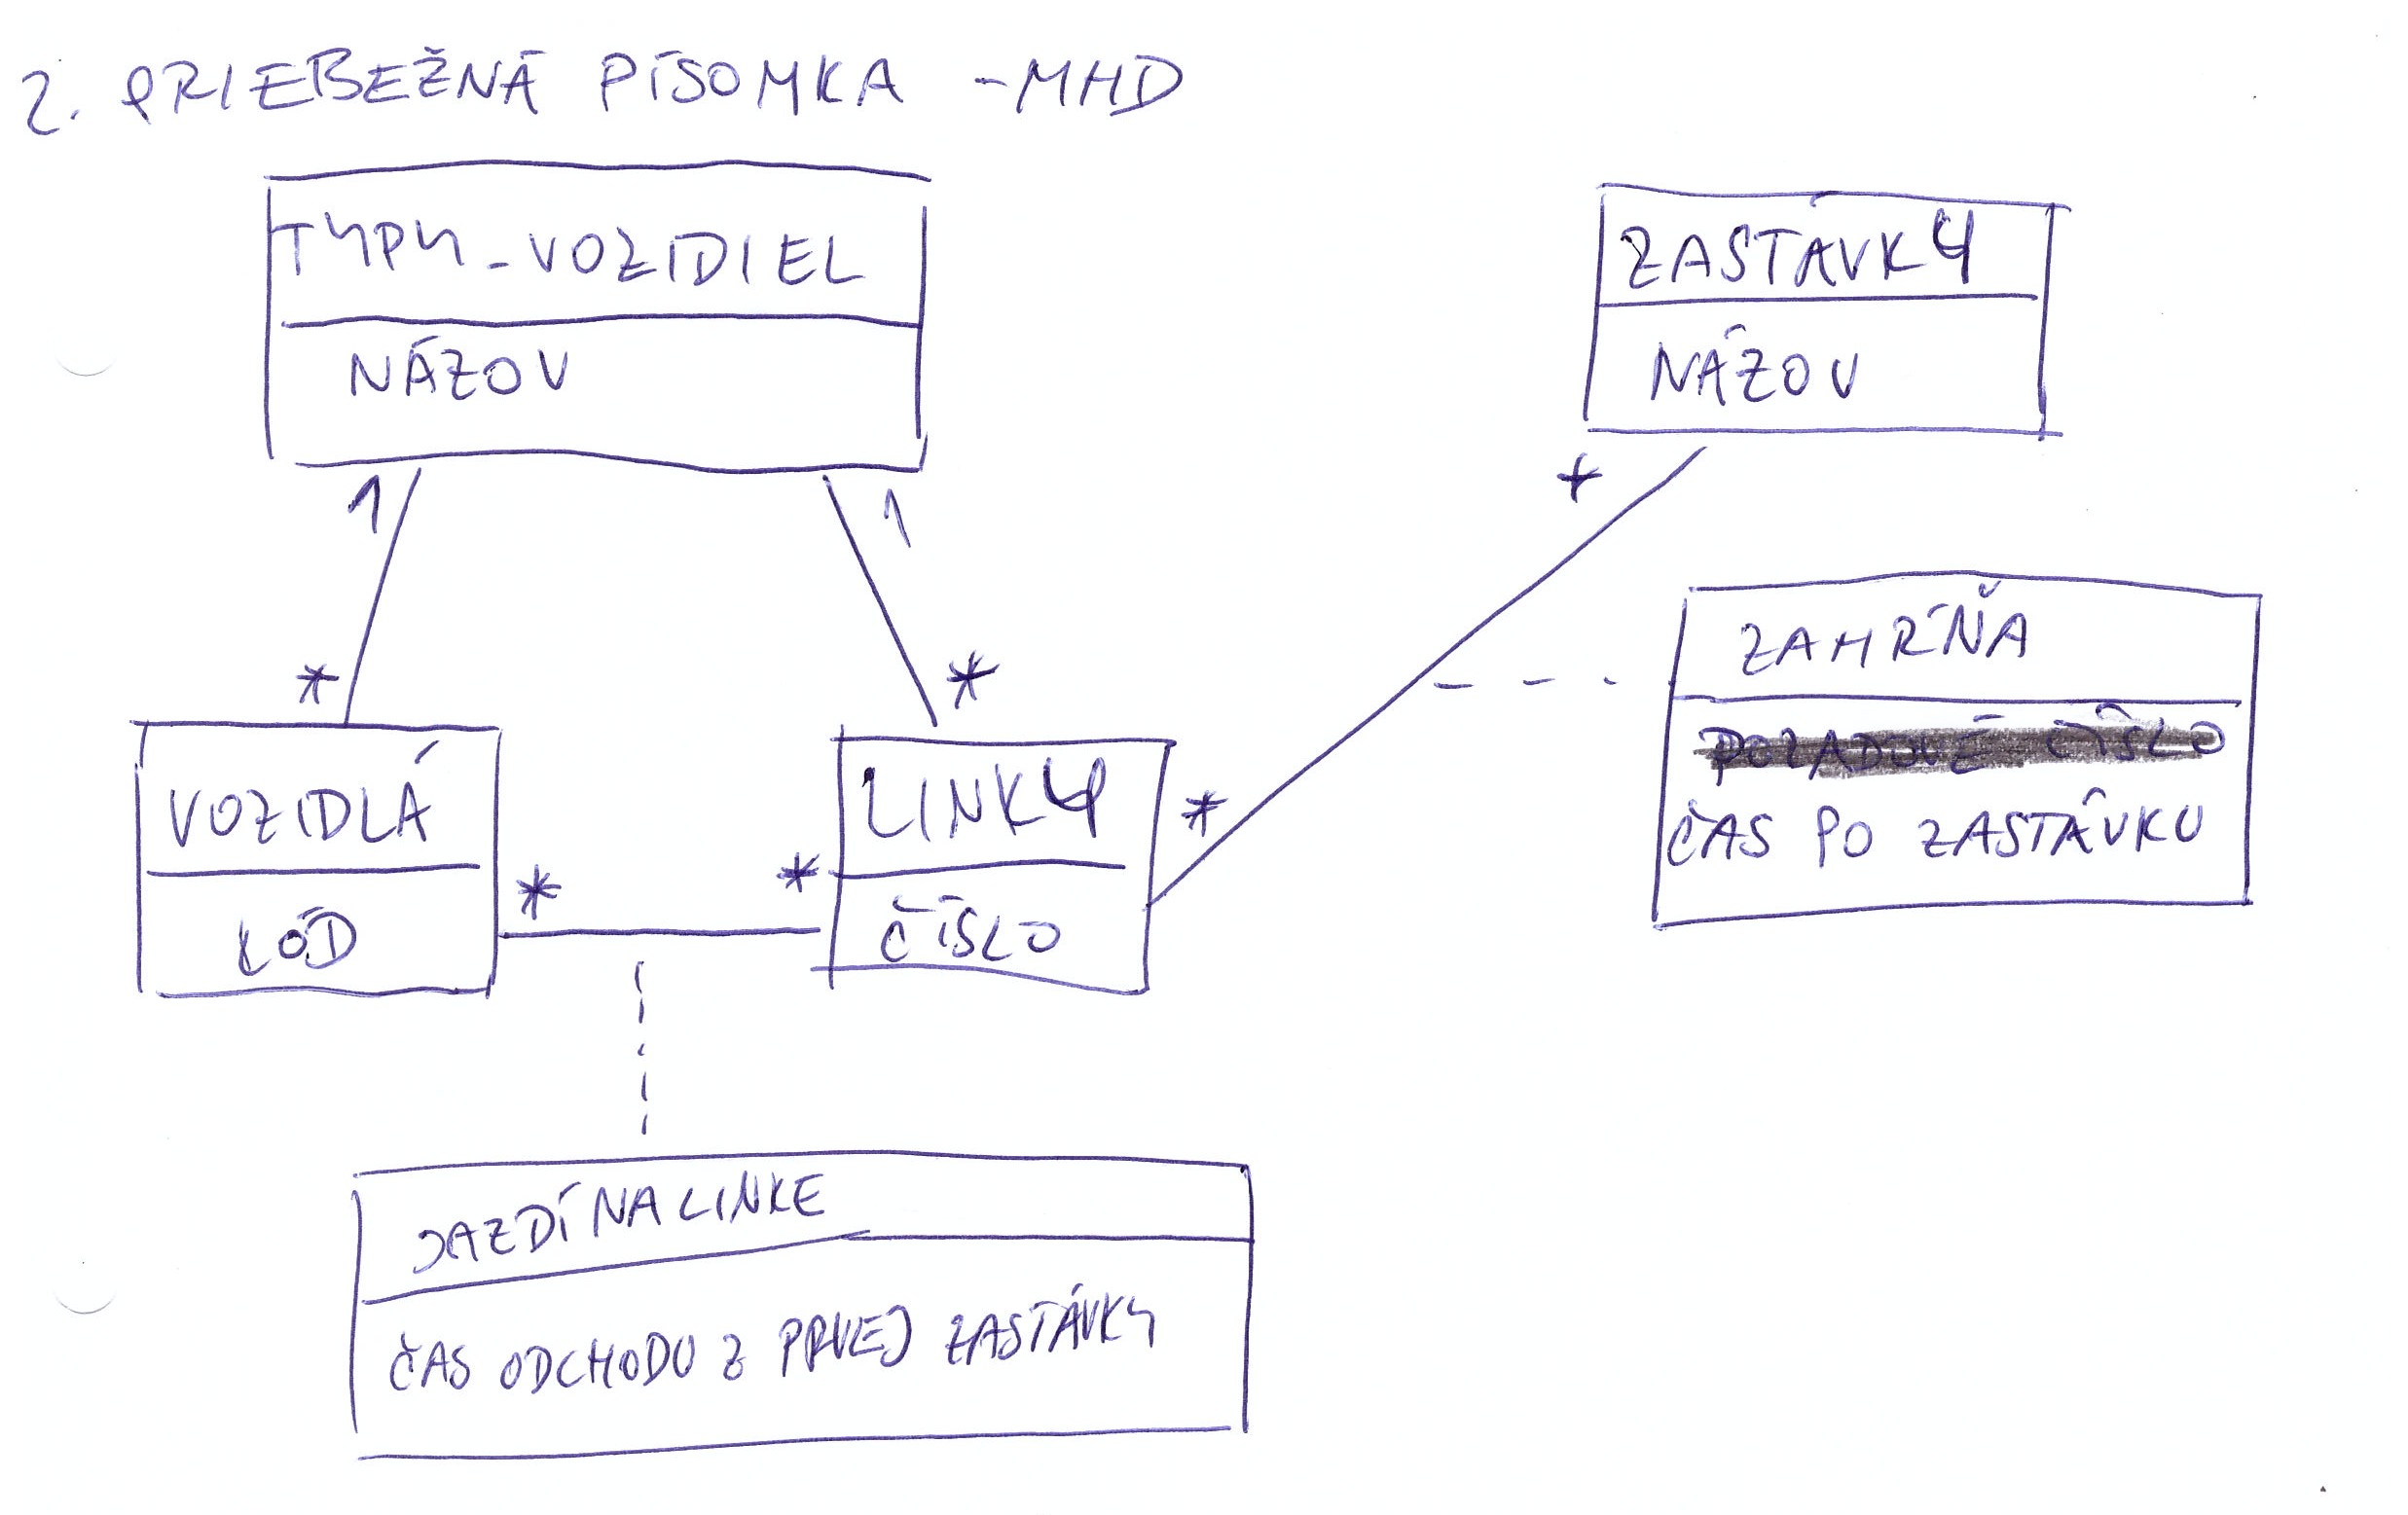 2. PRIEBEŽNÁ PÍSOMKA - MHD
TYPY_VOZIDIEL
NÁZOV
1
1
*
*
ZASTÁVKY
NÁZOV
*
ZAHŔŇA
ČAS PO ZASTÁVKU
VOZIDLÁ
KÓD
*
*
LINKY
ČÍSLO
*
JAZDÍ NA LINKE
ČAS ODCHODU Z PRVEJ ZASTÁVKY